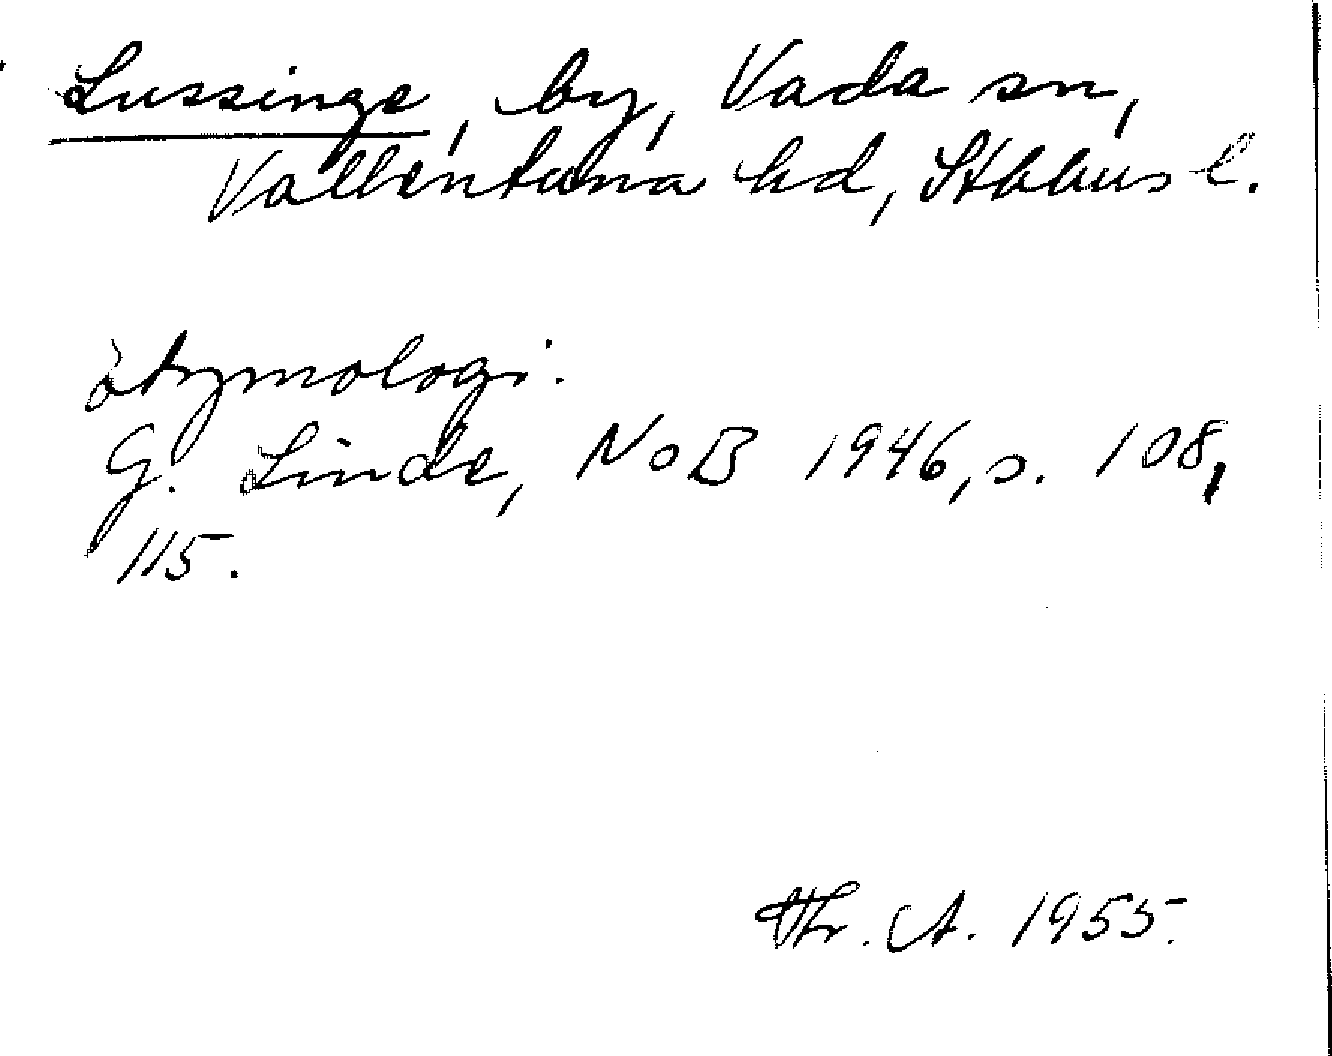 Lussinge, by, Vada sn,
Vallentuna hd, Sthhus l.
etymologi.
G. Linde, NoB 1946, s. 108,
115.
Thr. A. 1955.